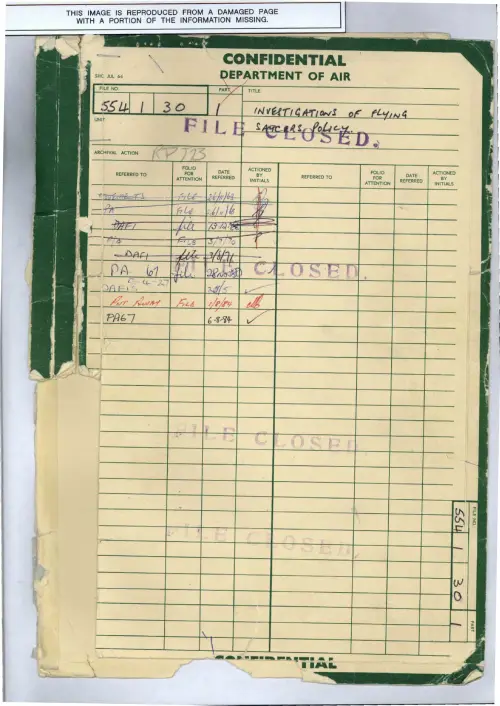 THIS IMAGE IS REPRODUCED FROM A DAMAGED PAGE
WITH A PORTION OF THE INFORMATION MISSING.
CONFIDENTIAL
DEPARTMENT OF AIR
FILE NO.
PART
TITLE
554 1 30
1
INVESTIGATIONS OF FLYING
UNIT
SAUCERS POLICY
FILE CLOSED.
ARCHIVAL ACTION
REFERRED TO
FOLIO FOR ATTENTION
DATE REFERRED
ACTIONED BY INITIALS
REFERRED TO
FOLIO FOR ATTENTION
DATE REFERRED
ACTIONED BY INITIALS
FILE
PA FILE
DAFI file
FILE
DAFI file
PA 67 file
CLOSED.
PUT AWAY FILE
PA67 6-8-84
FILE CLOSED.
FILE CLOSED.
FILE NO.
554 1 30
PART
1
CONFIDENTIAL